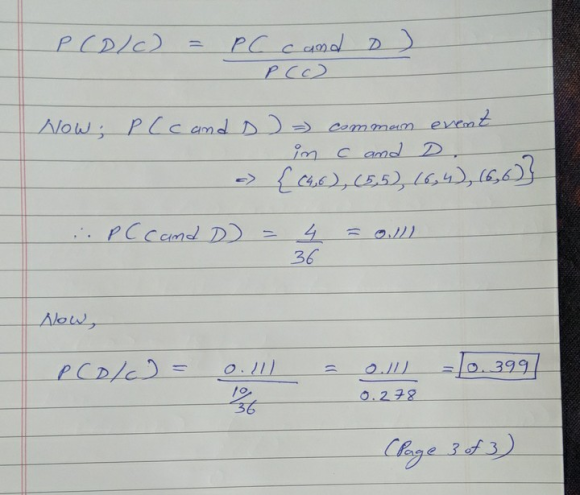 P(D/C) = P(C and D) / P(C)
Now; P(C and D) => common event
in C and D.
=> {(4,6), (5,5), (6,4), (6,6)}
∴ P(C and D) = 4/36 = 0.111
Now,
P(D/C) = 0.111 / (10/36) = 0.111 / 0.278 = 0.399
(Page 3 of 3)